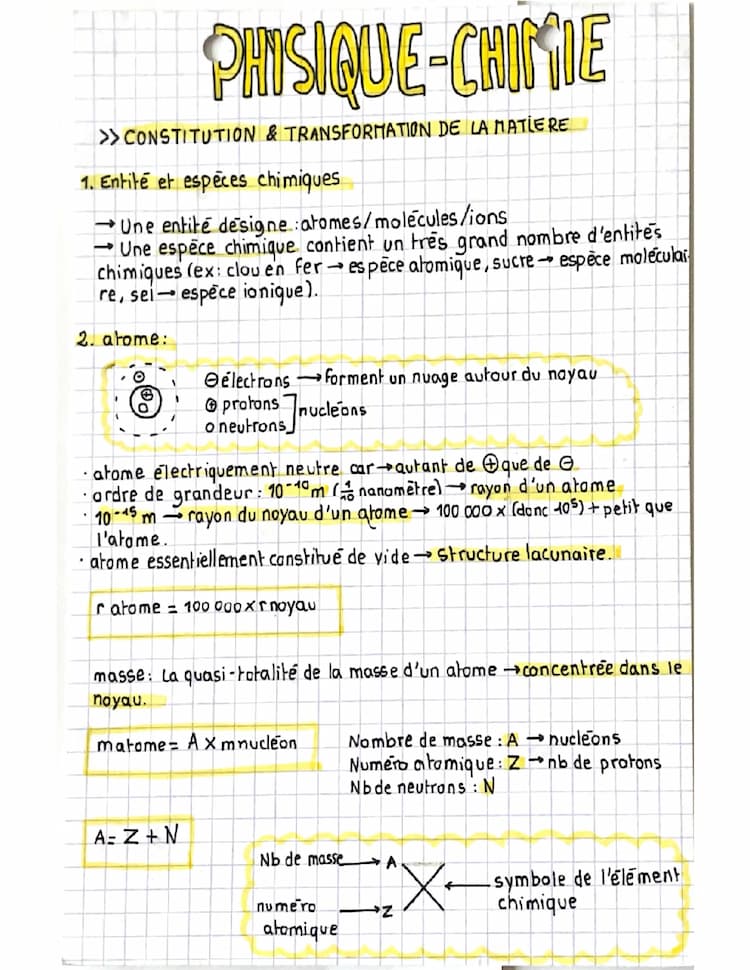 PHYSIQUE-CHIMIE
>> CONSTITUTION & TRANSFORMATION DE LA MATIERE
1. Entité et espèces chimiques
→ Une entité désigne : atomes/molécules/ions
→ Une espèce chimique contient un très grand nombre d'entités
chimiques (ex: clou en fer → espèce atomique, sucre → espèce moléculai-
re, sel → espèce ionique).
2. atome :
⊖ électrons → forment un nuage autour du noyau
⊕ protons ] nucléons
o neutrons
· atome électriquement neutre car → autant de ⊕ que de ⊖
· ordre de grandeur : 10⁻¹⁰ m (1/10 nanomètre) → rayon d'un atome
· 10⁻¹⁵ m → rayon du noyau d'un atome → 100 000 x (donc 10⁵) + petit que
l'atome.
· atome essentiellement constitué de vide → structure lacunaire.
r atome = 100 000 x r noyau
masse : La quasi-totalité de la masse d'un atome → concentrée dans le
noyau.
matome = A x mnucléon
Nombre de masse : A → nucléons
Numéro atomique : Z → nb de protons
Nb de neutrons : N
A = Z + N
Nb de masse → A
X ← symbole de l'élément
chimique
numéro → Z
atomique